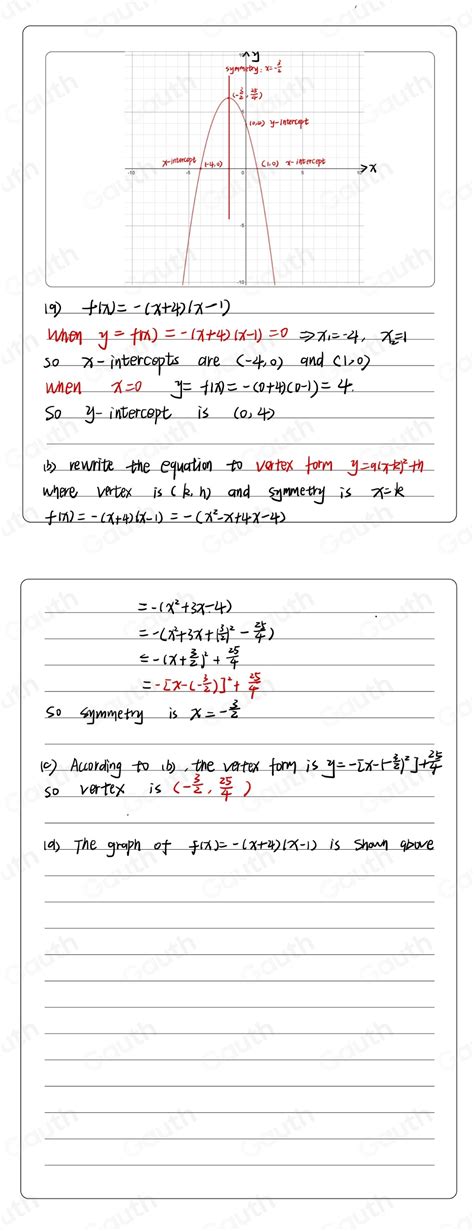 y
symmetry: x=-3/2
(-3/2, 25/4)
(0,4) y-intercept
x-intercept (-4,0) (1,0) x-intercept
x
-10 -5 0 5 10
5
-5
-10
(a) f(x) = -(x+4)(x-1)
When y = f(x) = -(x+4)(x-1) = 0 ⇒ x₁=-4, x₂=1
so x-intercepts are (-4,0) and (1,0)
when x=0 y=f(x)=-(0+4)(0-1)=4.
So y-intercept is (0,4)
(b) rewrite the equation to vertex form y=a(x-k)²+h
where vertex is (k, h) and symmetry is x=k
f(x) = -(x+4)(x-1) = -(x²-x+4x-4)
= -(x²+3x-4)
= -(x²+3x+(3/2)² - 25/4)
= -(x+3/2)² + 25/4
= -[x-(-3/2)]² + 25/4
so symmetry is x=-3/2
(c) According to (b), the vertex form is y=-[x-(-3/2)²]+25/4
so vertex is (-3/2, 25/4)
(d) The graph of f(x)=-(x+4)(x-1) is shown above
Gauth